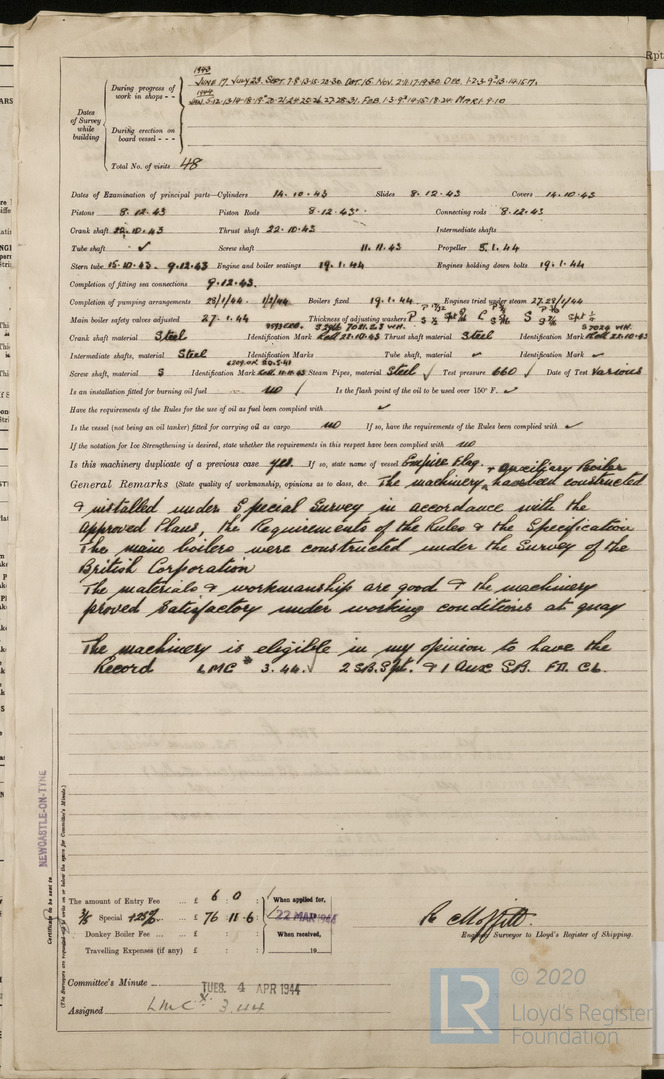 1943
June 17. July 23. Sept. 7-8-13-15-20-30. Oct. 16. Nov. 2-11-17-19-30. Dec. 1-2-3-9-13-14-15-17.
1944
Jan. 5-12-13-14-18-19-20-21-24-25-26-27-28-31. Feb. 1-3-9-14-15-18-24. Mar. 1-9-10
Dates of Survey while building
During progress of work in shops - -
During erection on board vessel - - -
Total No. of visits 48
Dates of Examination of principal parts—Cylinders 14.10.43 Slides 8.12.43 Covers 14.10.43
Pistons 8.12.43 Piston Rods 8.12.43 Connecting rods 8.12.43
Crank shaft 22.10.43 Thrust shaft 22.10.43 Intermediate shafts
Tube shaft ✓ Screw shaft 11.11.43 Propeller 5.1.44
Stern tube 15.10.43. 9.12.43 Engine and boiler seatings 19.1.44 Engines holding down bolts 19.1.44
Completion of fitting sea connections 9.12.43.
Completion of pumping arrangements 28/1/44 1/2/44 Boilers fixed 19.1.44 Engines tried under steam 27.28/1/44
Main boiler safety valves adjusted 27.1.44 Thickness of adjusting washers
Crank shaft material Steel Identification Mark 22.10.43 Thrust shaft material Steel Identification Mark 22.10.43
Intermediate shafts, material Steel Identification Marks Tube shaft, material ✓ Identification Mark ✓
Screw shaft, material S Identification Mark 11.11.43 Steam Pipes, material Steel ✓ Test pressure 660 ✓ Date of Test Various
Is an installation fitted for burning oil fuel no ✓ Is the flash point of the oil to be used over 150°F. ✓
Have the requirements of the Rules for the use of oil as fuel been complied with ✓
Is the vessel (not being an oil tanker) fitted for carrying oil as cargo no If so, have the requirements of the Rules been complied with ✓
If the notation for Ice Strengthening is desired, state whether the requirements in this respect have been complied with no
Is this machinery duplicate of a previous case yes. If so, state name of vessel Empire Flag.
+ auxiliary Boiler
General Remarks (State quality of workmanship, opinions as to class, &c. The machinery has been constructed
& installed under Special Survey in accordance with the
Approved Plans, the Requirements of the Rules & the Specification
The main boilers were constructed under the Survey of the
British Corporation
The materials & workmanship are good & the machinery
proved satisfactory under working conditions at quay
The machinery is eligible in my opinion to have the
Record LMC * 3.44. ✓ 2 S.B. Spt. & 1 Aux S.B. FD. CL.
NEWCASTLE-ON-TYNE
Certificate to be sent to
(The Surveyors are requested not to write on or below the space for Committee's Minute.)
The amount of Entry Fee ... £ 6 : 0 : When applied for,
3/5 Special +25% ... £ 76 : 11 : 6 22 MAR 1944
Donkey Boiler Fee ... £ : : When received,
Travelling Expenses (if any) £ : : 19
R Moffitt.
Engineer Surveyor to Lloyd's Register of Shipping.
Committee's Minute TUES. 4 APR 1944
Assigned LMC * 3.44
LR
© 2020
Lloyd's Register
Foundation